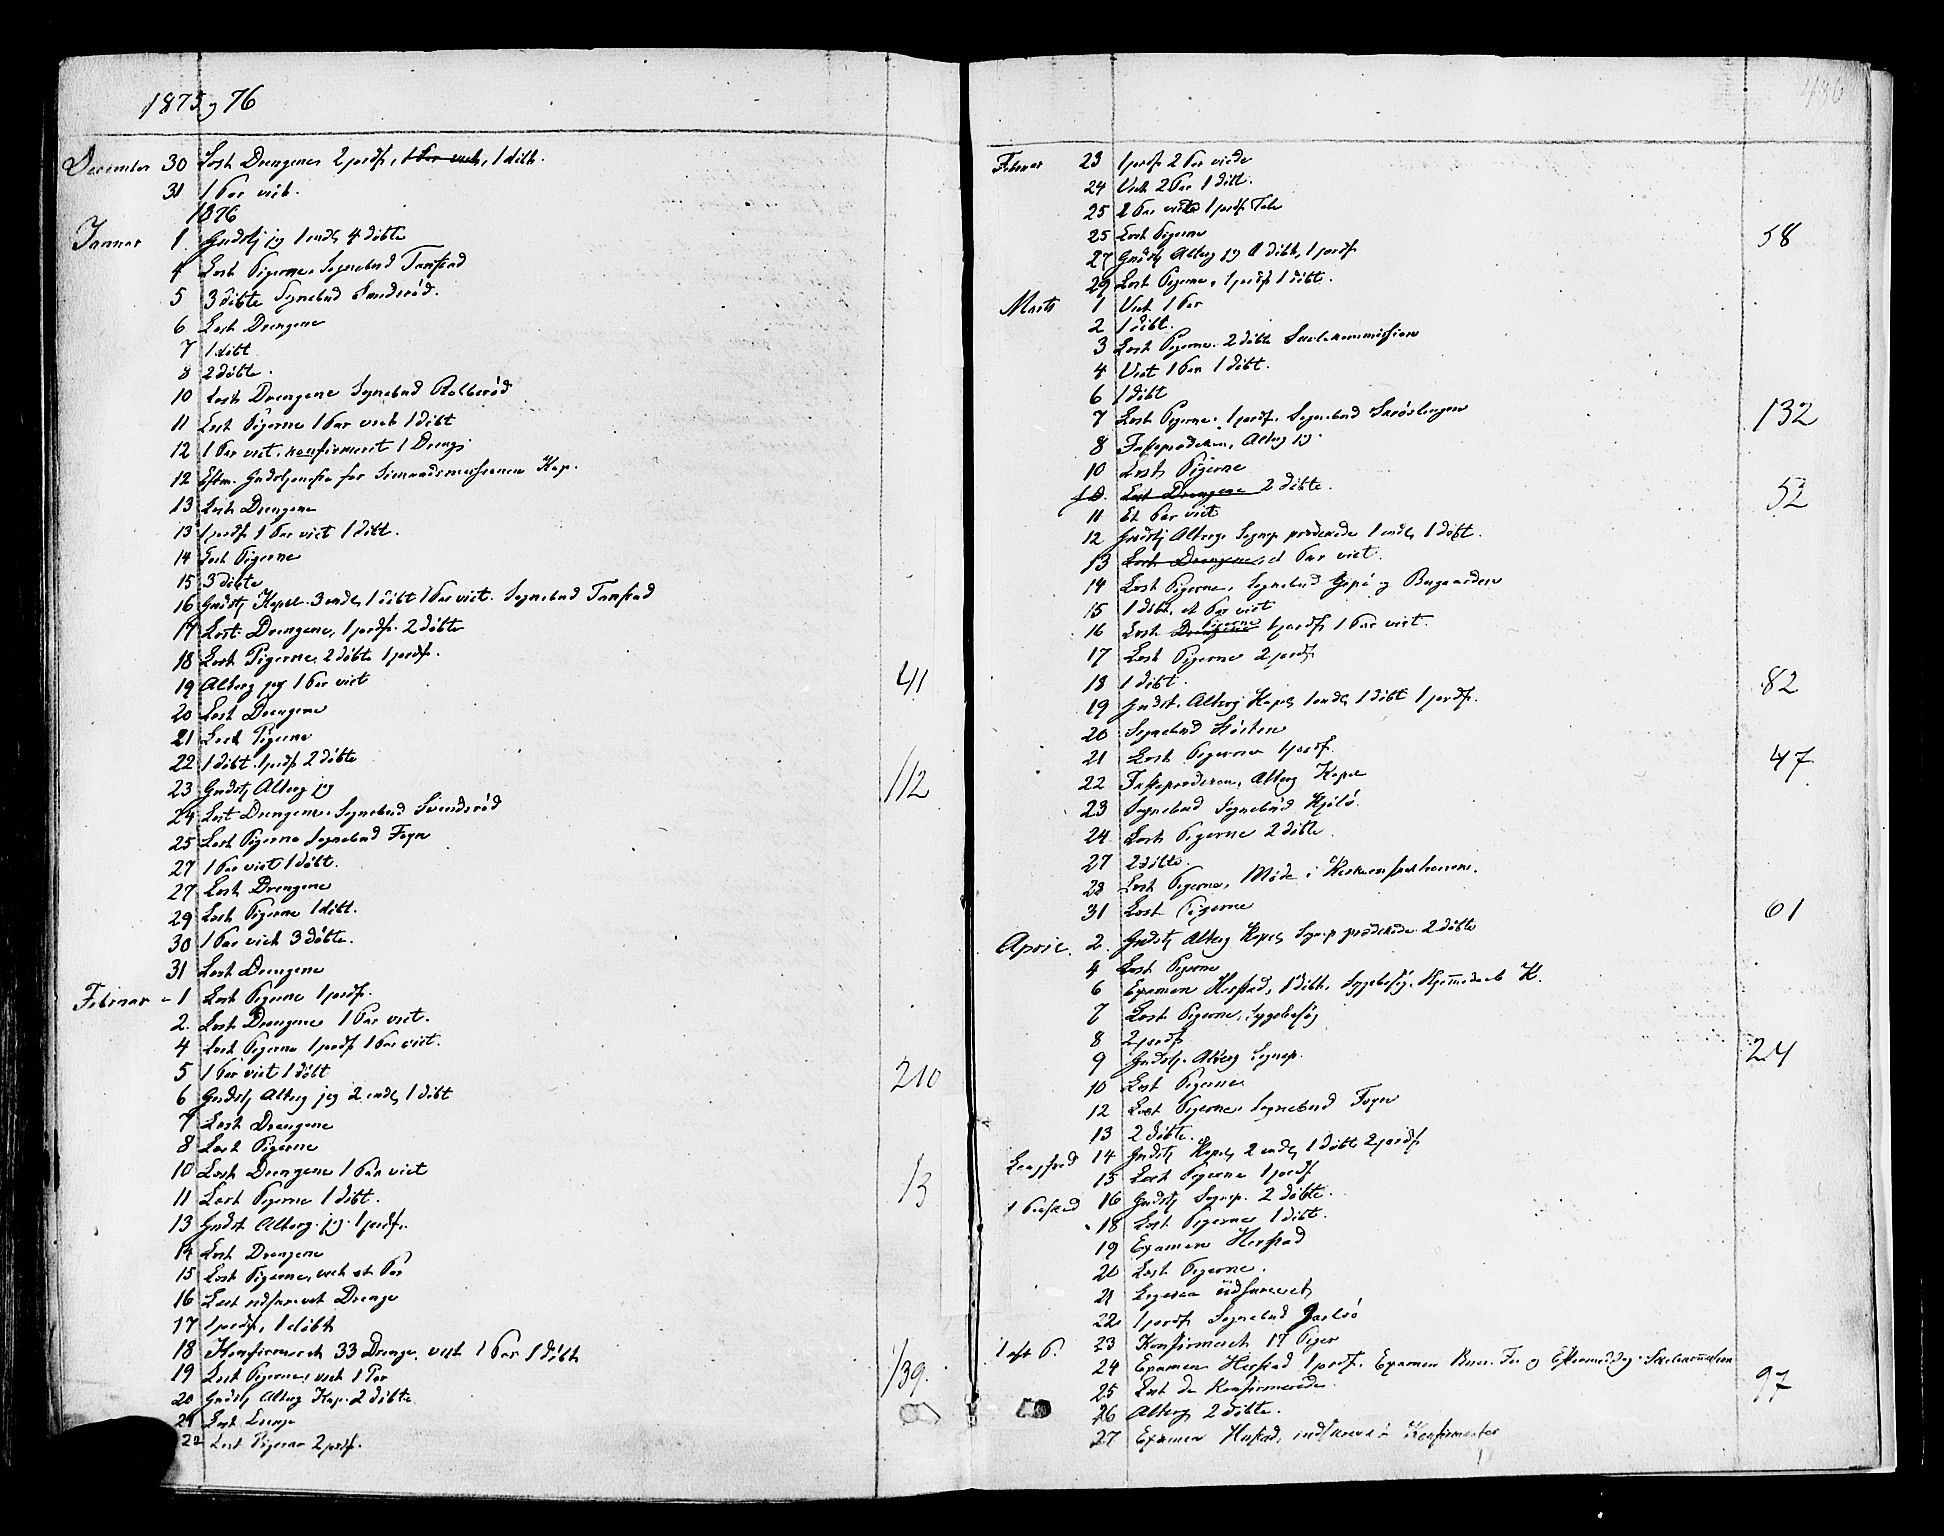 1875 og 76
December 30 Læst Drengene 2 jordf., 1 Par viet, 1 döbt.
31 1 Par viet.
1876
Januar 1. Gudstj jeg 1 indl, 4 döbte
4 Læst Pigerne, Sognebud
5 3 döbte Sognebud
6 Læst Drengene
7 1 döbt
8 2 döbte.
10 Læst Drengene Sognebud
11 Læst Pigerne 1 Par viet 1 döbt
12 1 Par viet. konfirmeret 1 Dreng
12 Eftm. Gudstjeneste for Kap.
13 Læst Drengene
13 1 jordf 1 Par viet 1 döbt.
14 Læst Pigerne
15 3 döbte
16 Gudstj Kapel. 3 indl, 1 döbt 1 Par viet. Sognebud
17 Læst Drengene, 1 jordf. 2 döbte
18 Læst Pigerne, 2 döbte 1 jordf.
19 Alterg jeg 1 Par viet 41
20 Læst Drengene
21 Læst Pigerne
22 1 döbt. 1 jordf 2 döbte
23 Gudstj Alterg jeg 112
24 Læst Drengene. Sognebud Svendsröd
25 Læst Pigerne Sognebud Fogn
27 1 Par viet 1 döbt.
27 Læst Drengene
29 Læst Pigerne 1 döbt.
30 1 Par viet 3 döbte.
31 Læst Drengene
Februar - 1 Læst Pigerne 1 jordf.
2. Læst Drengene 1 Par viet.
4 Læst Pigerne 1 jordf 1 Par viet.
5 1 Par viet 1 döbt
6 Gudstj Alterg jeg 2 indl, 1 döbt 210
7 Læst Drengene
8 Læst Pigerne
10 Læst Drengene 1 Par viet
11 Læst Pigerne 1 döbt. 13
13 Gudst Alterg. jeg. 1 jordf.
14 Læst Drengene
15 Læst Pigerne, viet et Par
16 Læst udskrevet Drenge
17 1 jordf, 1 döbt
18 Konfirmeret 33 Drenge, viet 1 Par 1 döbt
19 Læst Pigerne, viet 1 Par 139.
20 Gudstj Alterg Kap. 2 döbte
21 Læst Drenge
22 Læst Pigerne 2 jordf.
486
Februar 23 1 jordf. 2 Par viede
24 Viet 2 Par 1 döbt.
25 2 Par viede 1 jordf. Tale
25 Læst Pigerne 58
27 Gudstj Alterg jeg 1 döbt, 1 jordf
29 Læst Pigerne, 1 jordf 1 döbt.
Marts 1 Viet 1 Par
2 1 döbt.
3 Læst Pigerne. 2 döbte Skolekommission
4 Viet 1 Par 1 döbt.
6 1 döbt
7 Læst Pigerne. 1 jordf. Sognebud 132
8 Fasteprædiken, Alterg jeg.
10 Læst Pigerne
10. Læst Drengene 2 döbte. 52
11 Et Par viet
12 Gudstj Alterg. Sognep prædikede 1 indl, 1 döbt.
13 Læst Drengene, et Par viet.
14 Læst Pigerne, Sognebud og
15 1 döbt, et Par viet
16 Læst Drengene Pigerne 1 jordf, 1 Par viet.
17 Læst Pigerne 2 jordf
18 1 döbt. 82
19 Gudst. Alterg Kapel, 1 indl, 1 döbt 1 jordf.
20 Sognebud
21 Læst Pigerne 1 jordf. 47
22 Fasteprædiken, Alterg Kapel
23 Sognebud Sognebud
24. Læst Pigerne 2 döbte
27 2 döbte.
28 Læst Pigerne, Möde i
31 Læst Pigerne 61
April. 2. Gudstj Alterg Kapel, Sognep prædikede 2 döbte
4 Læst Pigerne
6 Examen Herstad, 1 döbt, Sygebesög. Hjemmedöbt K.
7 Læst Pigerne, Sygebesög
8 2 jordf
9 Gudstj. Alterg Sognep. 24
10 Læst Pigerne
12 Læst Pigerne. Sognebud Fogn
13 2 döbte.
Langfred 14 Gudstj Kapel, 2 indl, 1 döbt 2 jordf.
15 Læst Pigerne 1 jordf
1 Paasked 16 Gudstj Sognep. 2 döbte.
18 Læst Pigerne 1 döbt.
19 Examen Herstad
20 Læst Pigerne.
21 Ligesaa udskrevet,
22 1 jordf Sognebud
1 eft P. 23 Konfirmeret 17 Piger
24 Examen Herstad 1 jordf. Examen For og Eftermiddag. Skolekommission
25 Læst de Konfirmerede. 97
26 Alterg 2 döbte.
27 Examen Herstad, indskrevet Konfirmanter